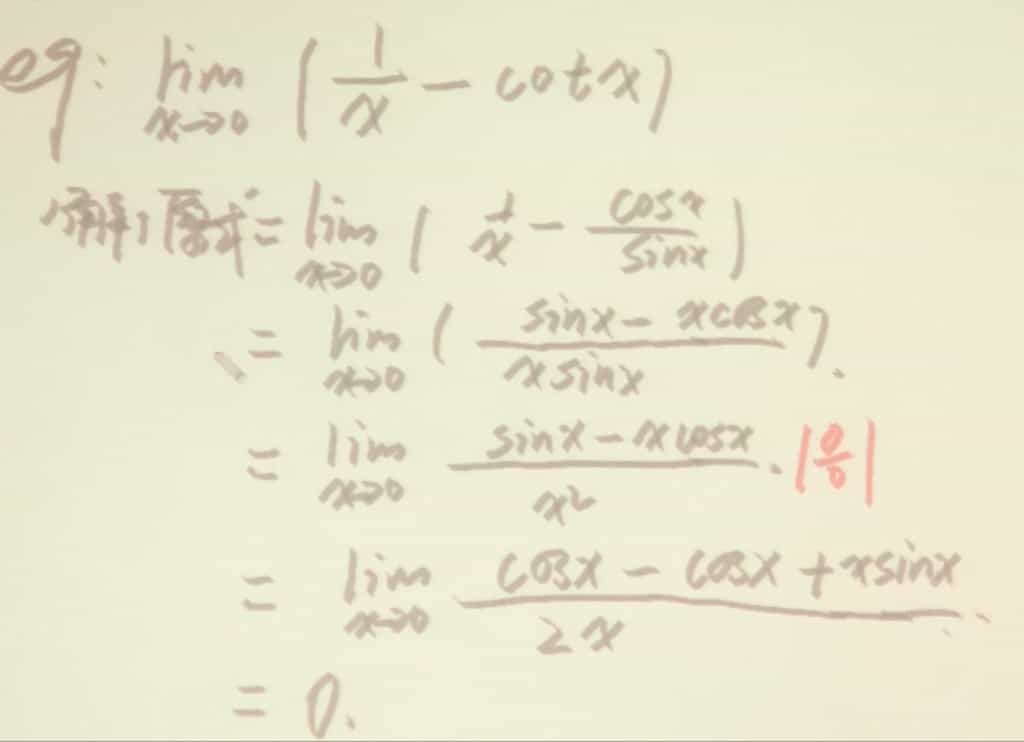 eg: lim x→0 (1/x - cot x)
解: 原式 = lim x→0 (1/x - cosx/sinx)
= lim x→0 (sinx - xcosx / x sinx).
= lim x→0 sinx - xcosx / x². |0/0|
= lim x→0 cosx - cosx + xsinx / 2x.
= 0.